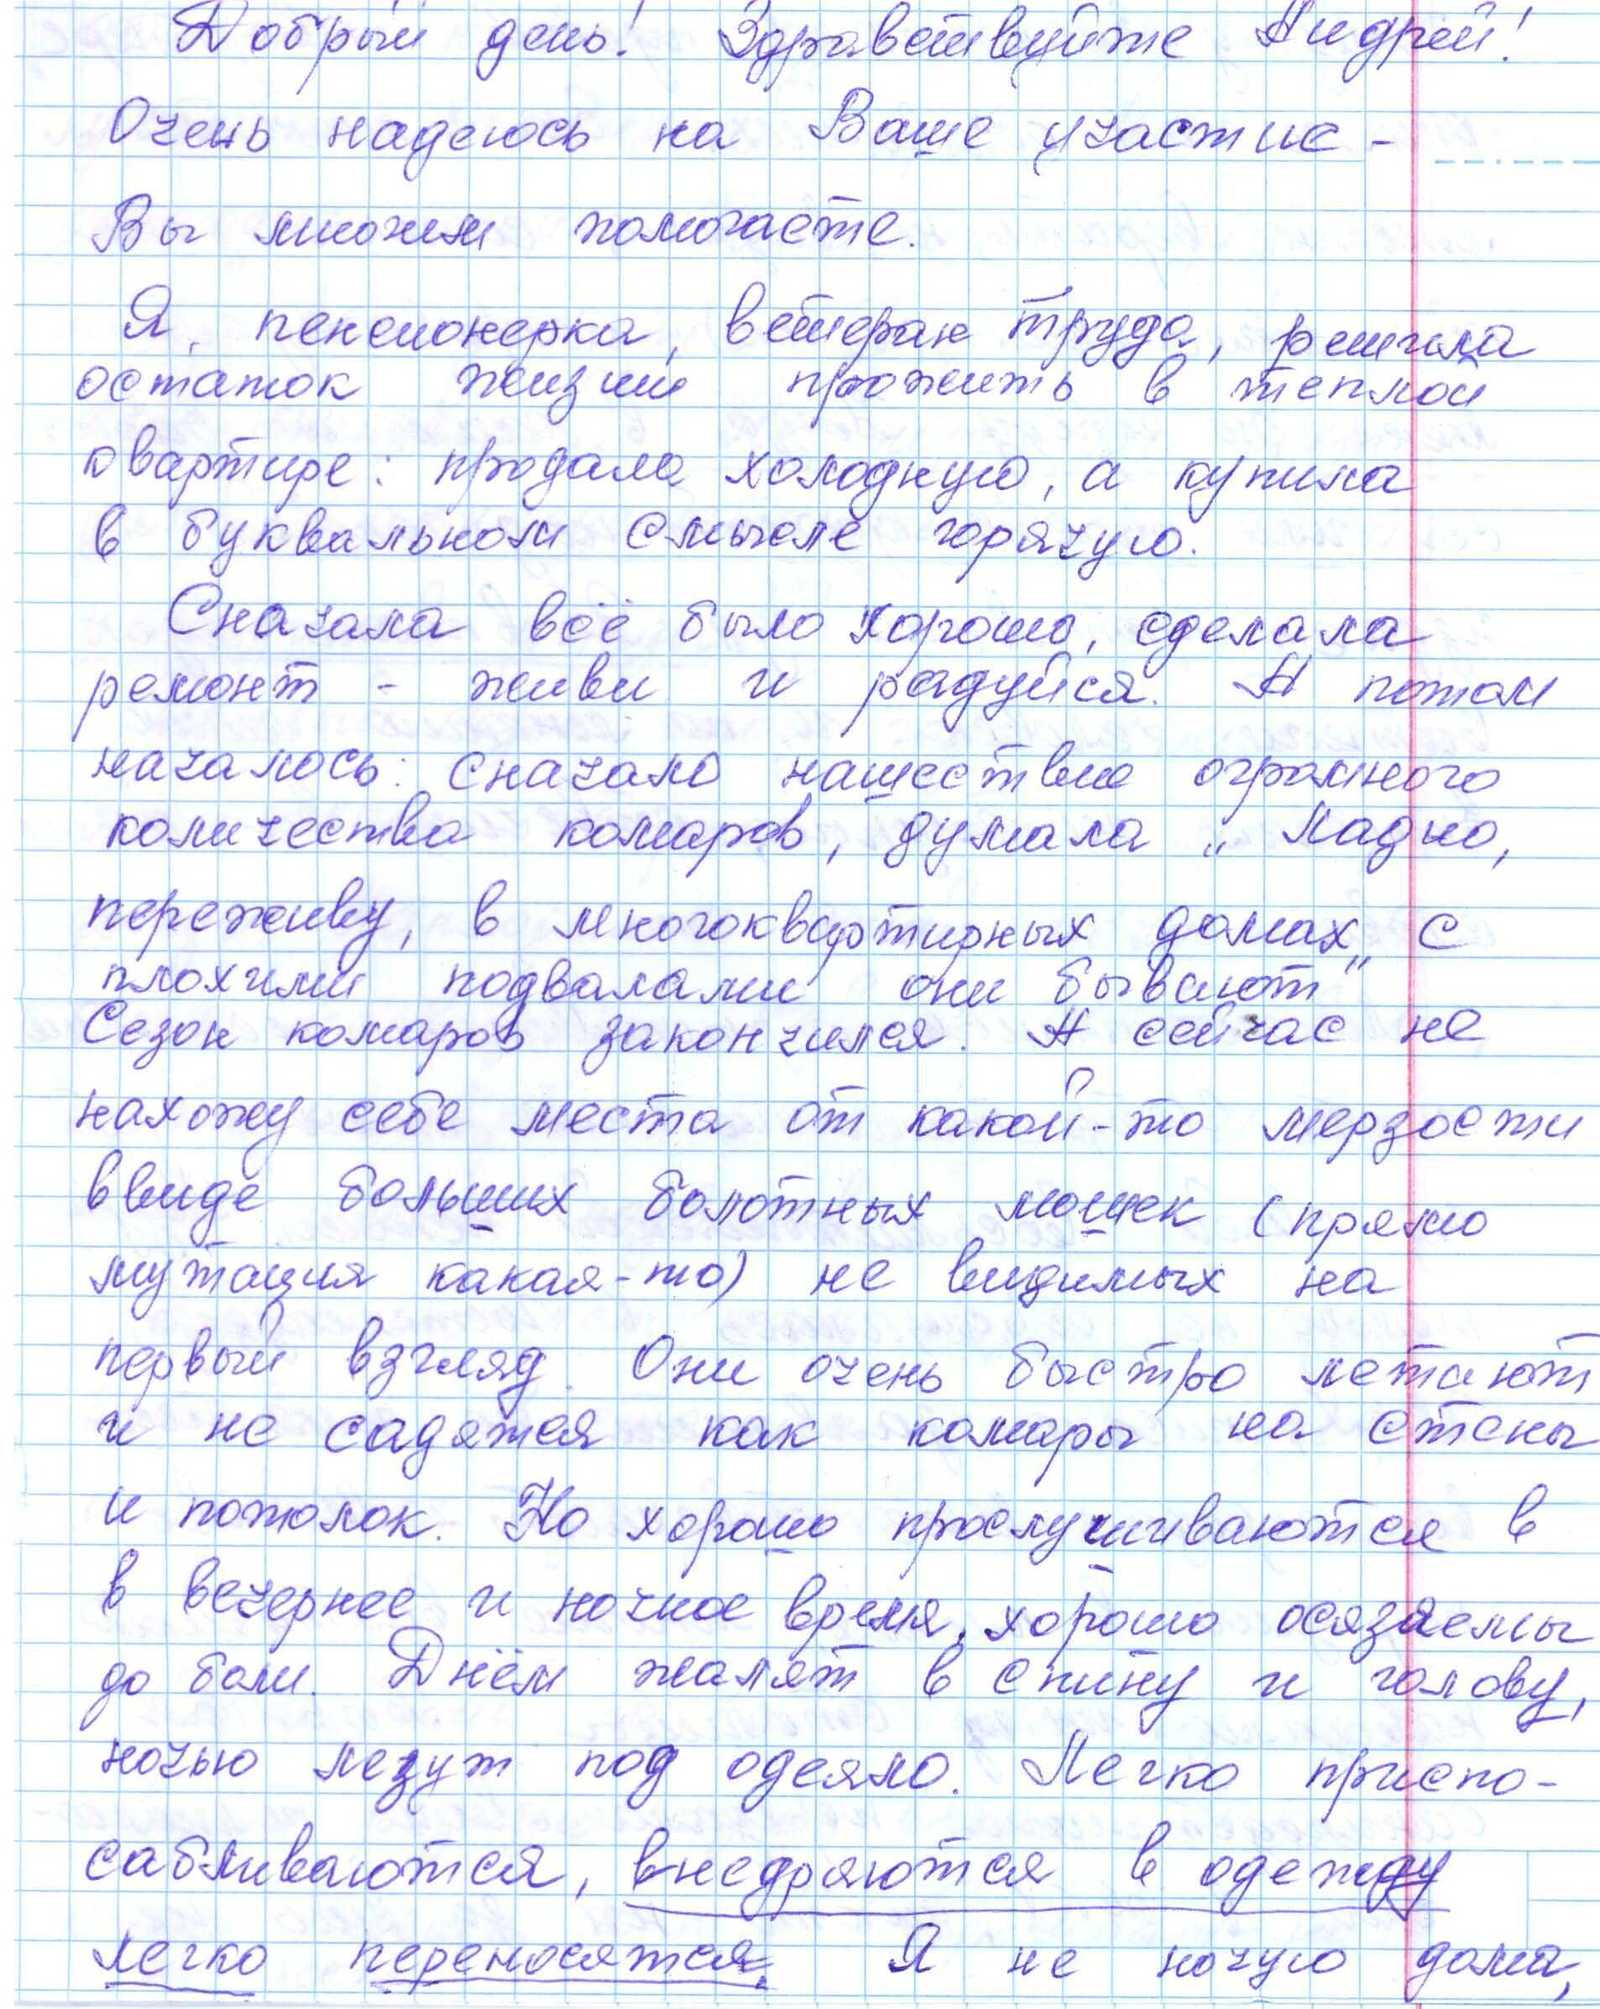 Добрый день! Здравствуйте Андрей!
Очень надеюсь на Ваше участие -
Вы многим помогаете.
Я, пенсионерка, ветеран труда, решила
остаток жизни прожить в теплой
квартире: продала холодную, а купила
в буквальном смысле горячую.
Сначала всё было хорошо, сделала
ремонт - живи и радуйся. А потом
началось: сначало нашествие огромного
количества комаров, думала „Ладно,
переживу, в многоквартирных домах„ с
плохими подвалами они бывают"
Сезон комаров закончился. А сейчас не
нахожу себе места от какой-то мерзости
ввиде больших болотных мошек (прямо
мутация какая-то) не видимых на
первый взгляд. Они очень быстро летают
и не садятся как комары на стены
и потолок. Но хорошо прослушиваются в
в вечернее и ночное время, хорошо осязаемы
до боли. Днём жалят в спину и голову,
ночью лезут под одеяло. Легко приспо-
сабливаются, внедряются в одежду
легко переносятся. Я не ночую дома,